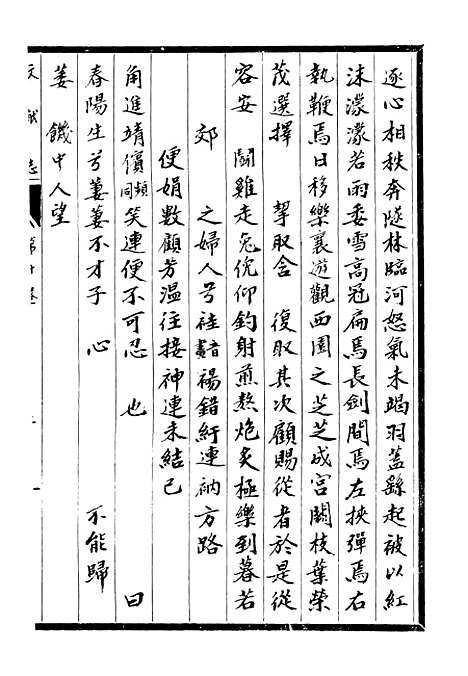 逐心相秩奔隧林臨河怒氣未竭羽蓋繇起被以紅
沫濛濛若雨委雪高冠扁焉長劍閒焉左挾彈焉右
執鞭焉日移樂襄遊觀西園之芝芝成宮闕枝葉榮
茂選擇　挈取含　復取其次顧賜從者於是從
容安　鬭雞走兔俛仰釣射煎熬炮炙極樂到暮若
郊　之婦人兮袿䙱裼錯紆連衲方路
便娟數顧芳溫往接神連未結已
角進靖儐頻笑連便不可忍　也　曰
春陽生兮萋萋不才子　心　不能歸
萋　饑中人望
文獻志
第十卷